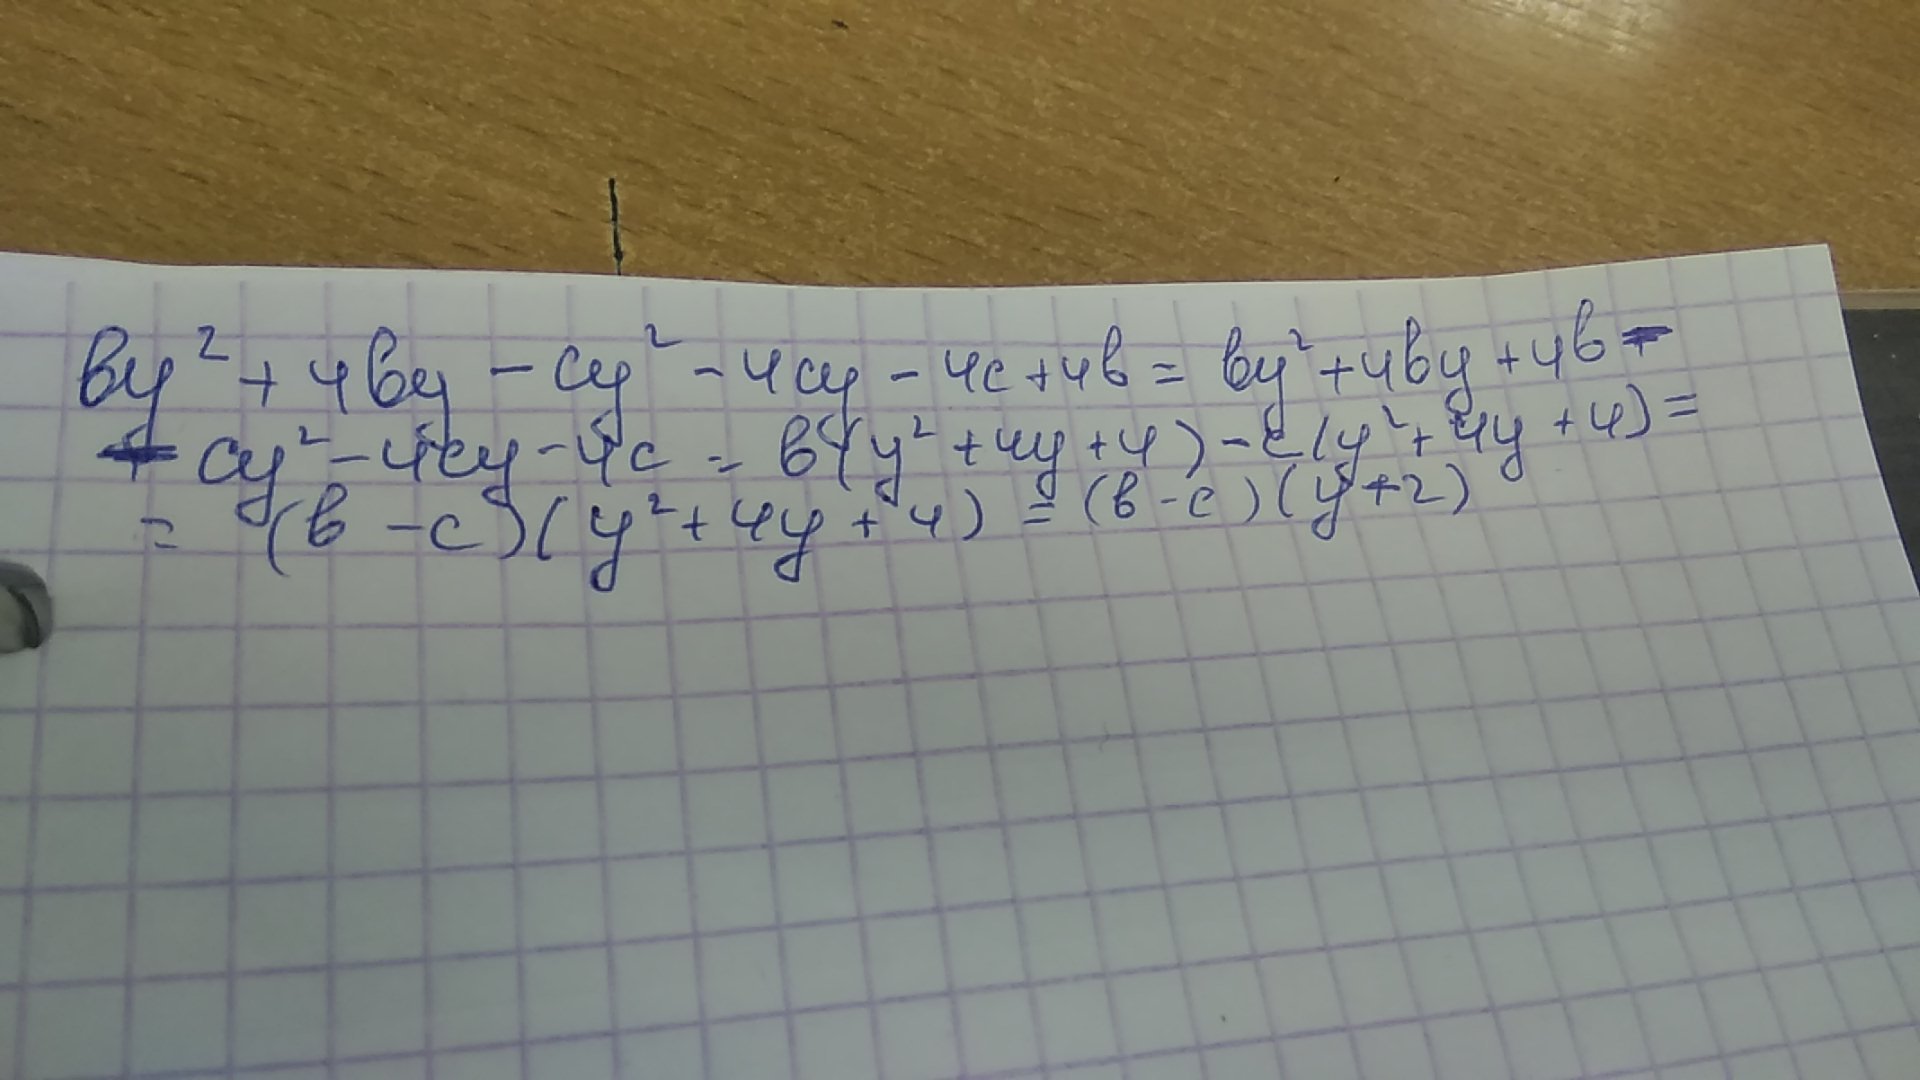 by² + 4by - cy² - 4cy - 4c + 4b = by² + 4by + 4b -
- cy² - 4cy - 4c = b(y² + 4y + 4) - c(y² + 4y + 4) =
= (b - c)(y² + 4y + 4) = (b - c)(y + 2)